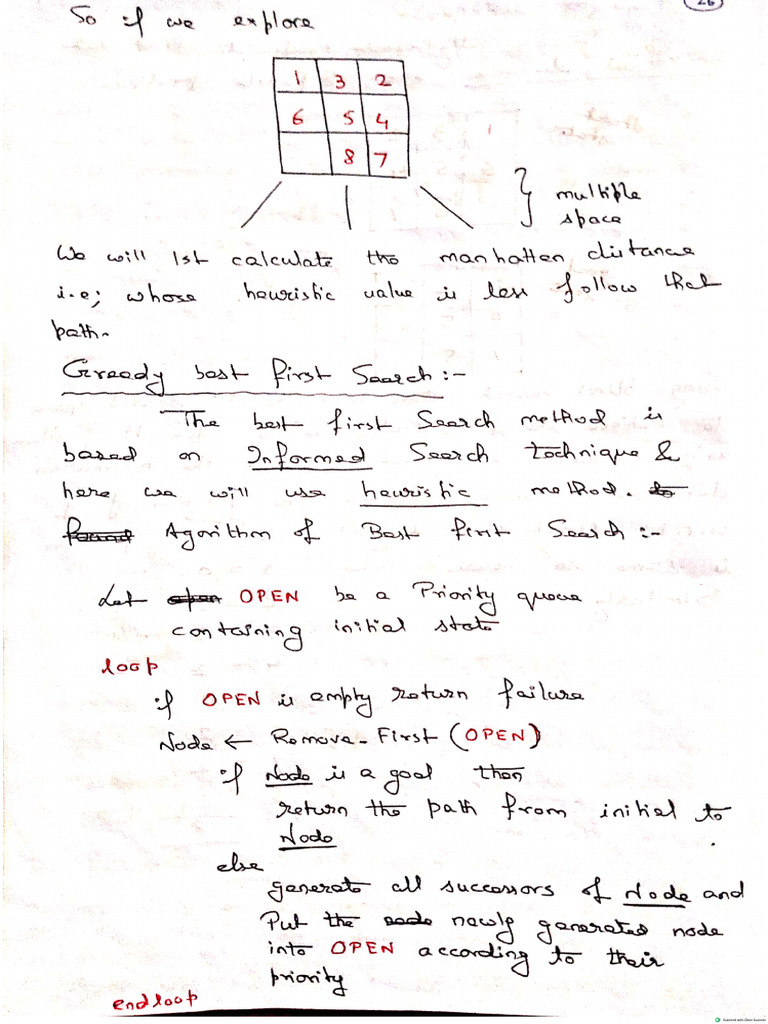 26
So if we explore
1 3 2
6 5 4
8 7
multiple
space
We will 1st calculate the manhatten distance
i.e; whose heuristic value is less follow that
path.
Greedy best first Search :-
The best first Search method is
based on Informed Search technique &
here we will use heuristic method. to
found Agorithm of Best first Search :-
Let open OPEN be a Priority queue
containing initial state
loop
if OPEN is empty return failure
Node ← Remove-First (OPEN)
if Node is a goal then
return the path from initial to
Node
else
generate all successors of Node and
Put the node newly generated node
into OPEN according to their
priority
endloop
Scanned with Oken Scanner